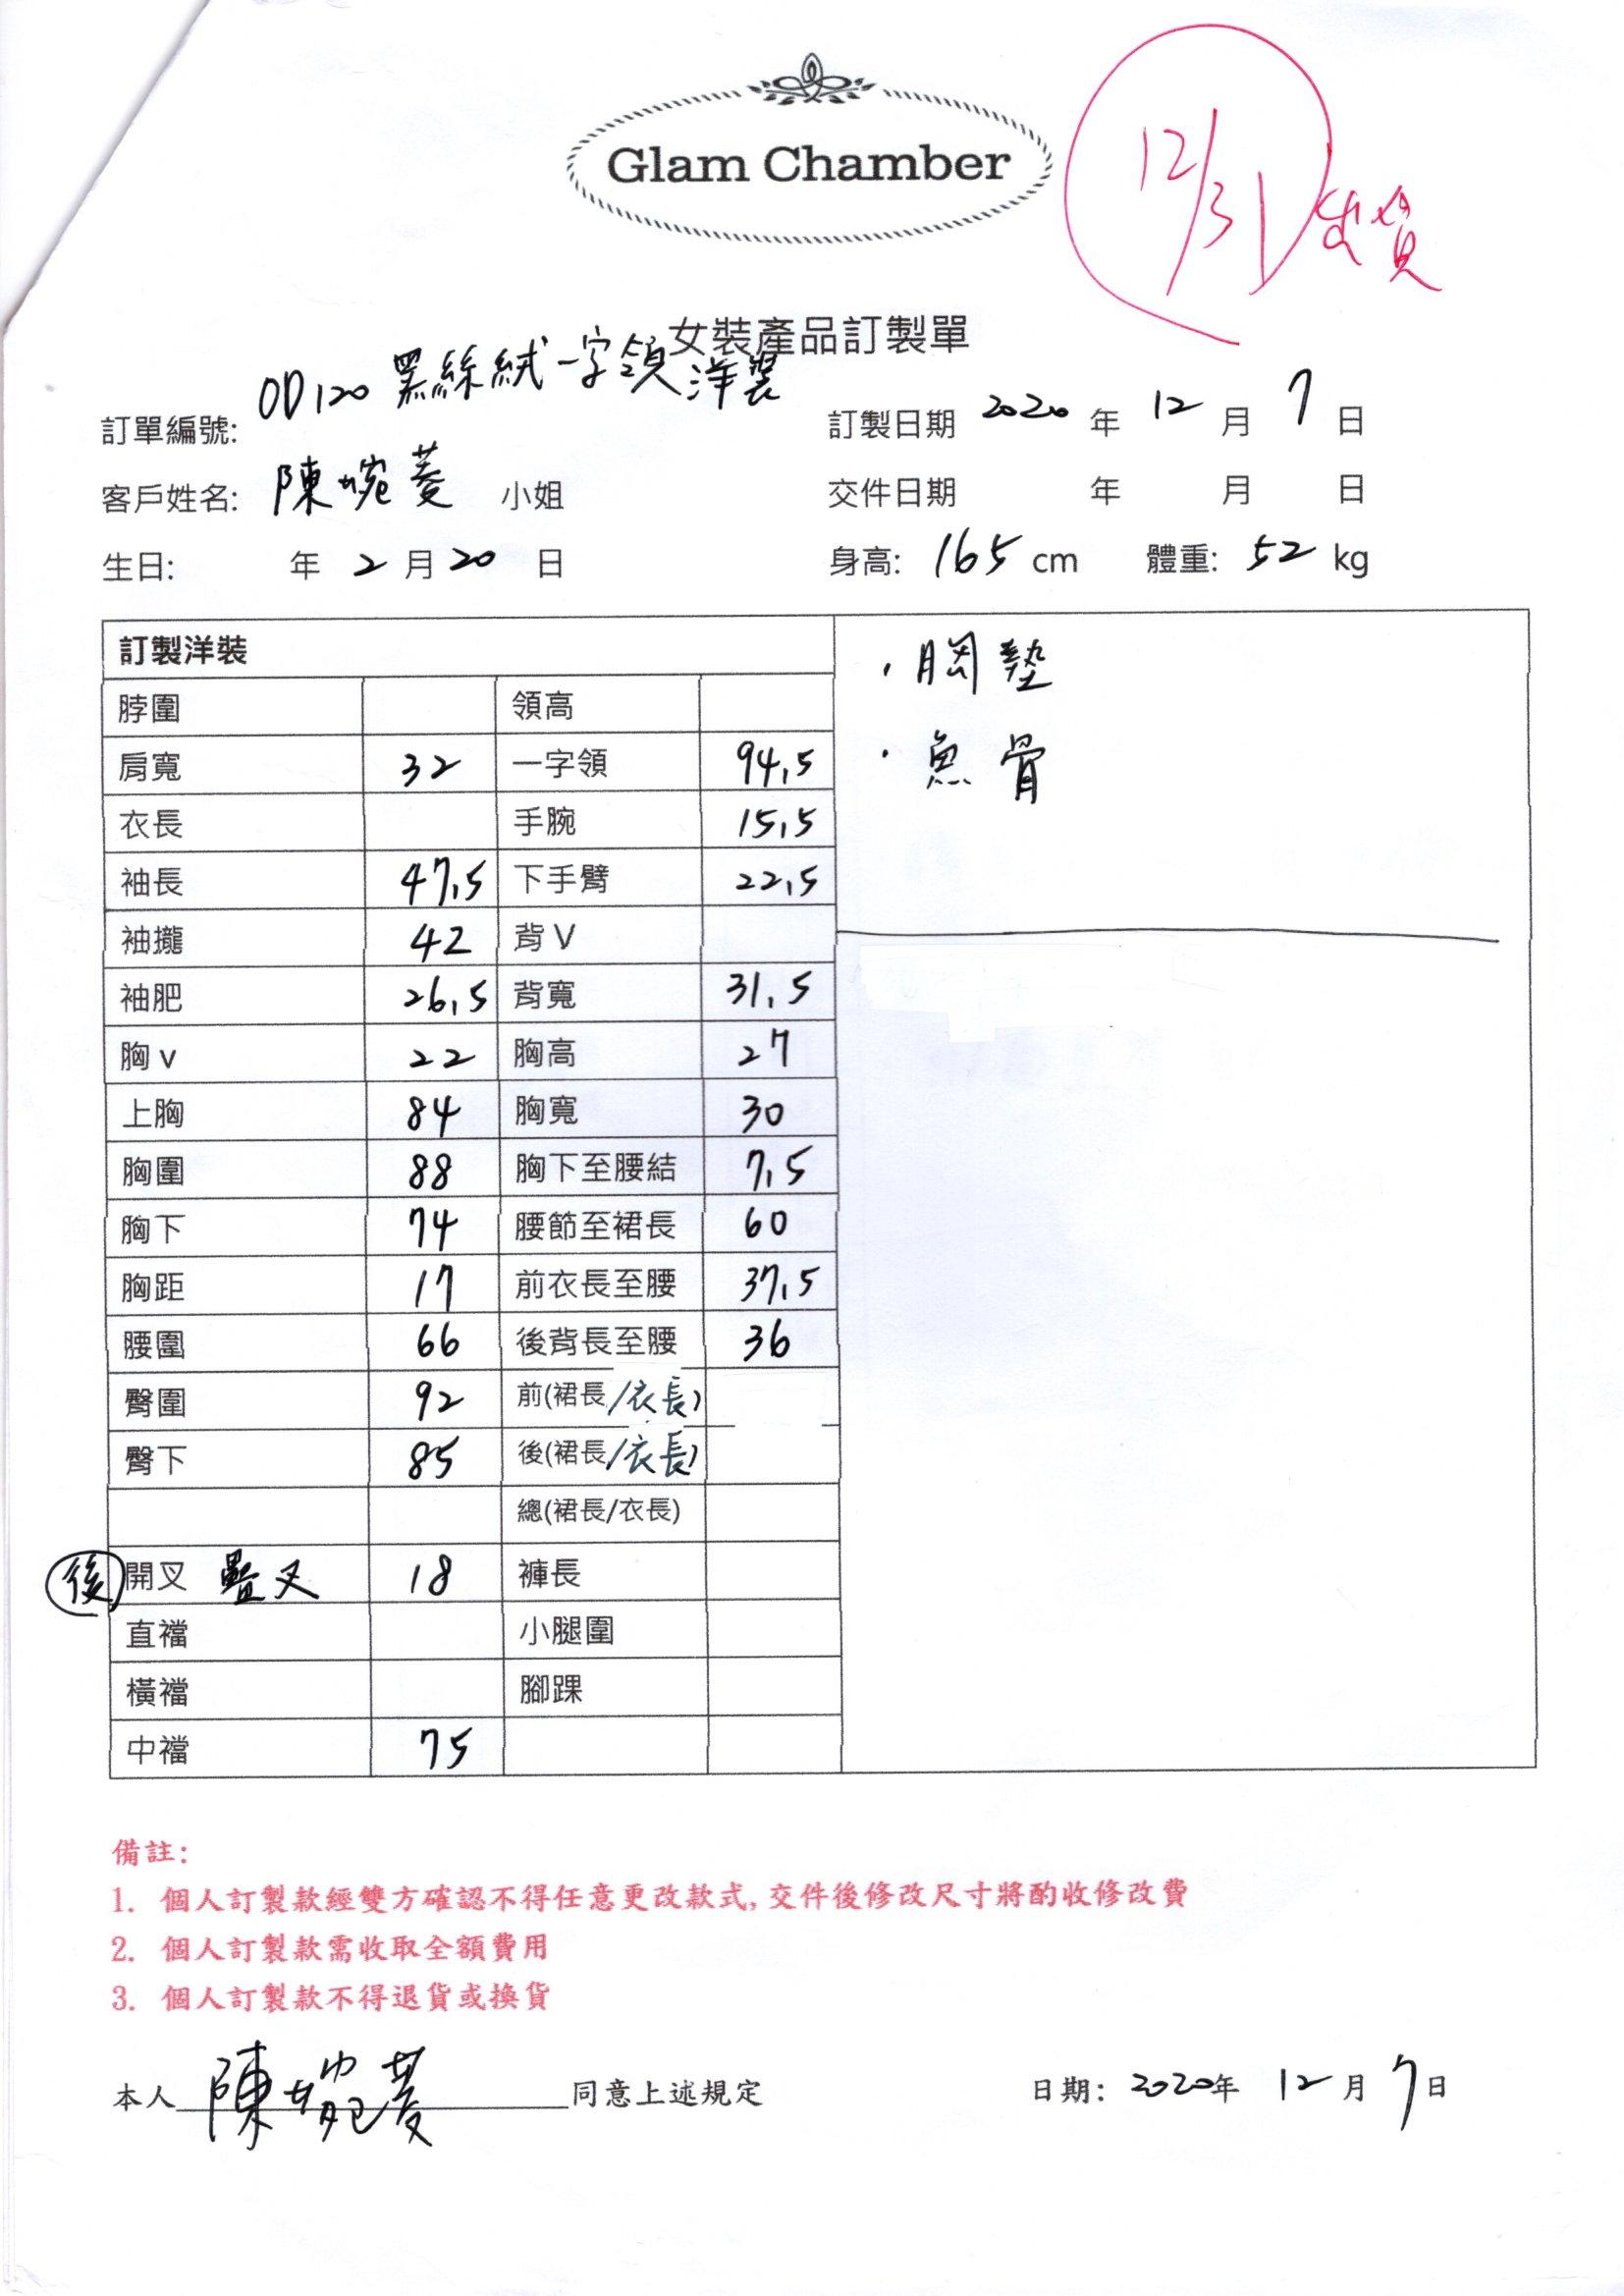 Glam Chamber
12/31出貨
女裝產品訂製單
訂單編號: OD120 黑絲絨一字領洋裝
訂製日期 2020 年 12 月 7 日
客戶姓名: 陳婉菱 小姐
交件日期 年 月 日
生日: 年 2 月 20 日
身高: 165 cm 體重: 52 kg
訂製洋裝
脖圍 領高
肩寬 32 一字領 94.5
衣長 手腕 15.5
袖長 47.5 下手臂 22.5
袖攏 42 背 V
袖肥 26.5 背寬 31.5
胸 v 22 胸高 27
上胸 84 胸寬 30
胸圍 88 胸下至腰結 7.5
胸下 74 腰節至裙長 60
胸距 17 前衣長至腰 37.5
腰圍 66 後背長至腰 36
臀圍 92 前(裙長/衣長)
臀下 85 後(裙長/衣長)
總(裙長/衣長)
後 開叉 疊叉 18 褲長
直襠 小腿圍
橫襠 腳踝
中襠 75
·胸墊
·魚骨
備註:
1. 個人訂製款經雙方確認不得任意更改款式,交件後修改尺寸將酌收修改費
2. 個人訂製款需收取全額費用
3. 個人訂製款不得退貨或換貨
本人 陳婉菱 同意上述規定
日期: 2020年 12 月 7 日